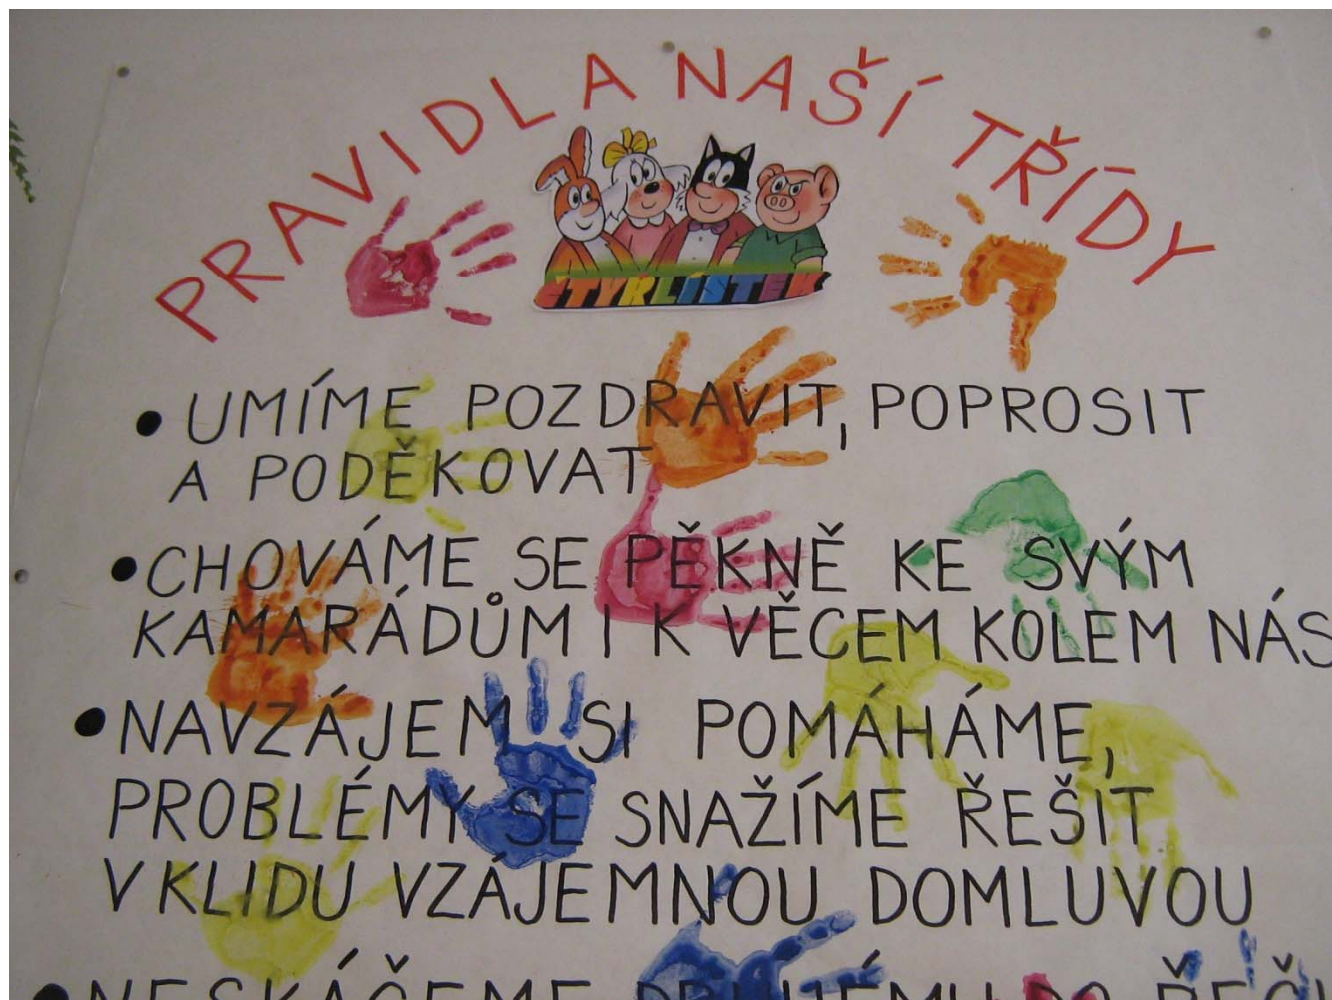 PRAVIDLA NAŠÍ TŘÍDY
ČTYŘLÍSTEK
• UMÍME POZDRAVIT, POPROSIT
A PODĚKOVAT
• CHOVÁME SE PĚKNĚ KE SVÝM
KAMARÁDŮM I K VĚCEM KOLEM NÁS
• NAVZÁJEM SI POMÁHÁME,
PROBLÉMY SE SNAŽÍME ŘEŠIT
V KLIDU VZÁJEMNOU DOMLUVOU
• NESKÁČEME DRUHÉMU DO ŘEČI